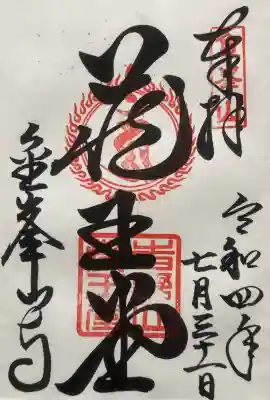 奉拝
令和四年
七月三十一日
蔵王堂
金峯山寺